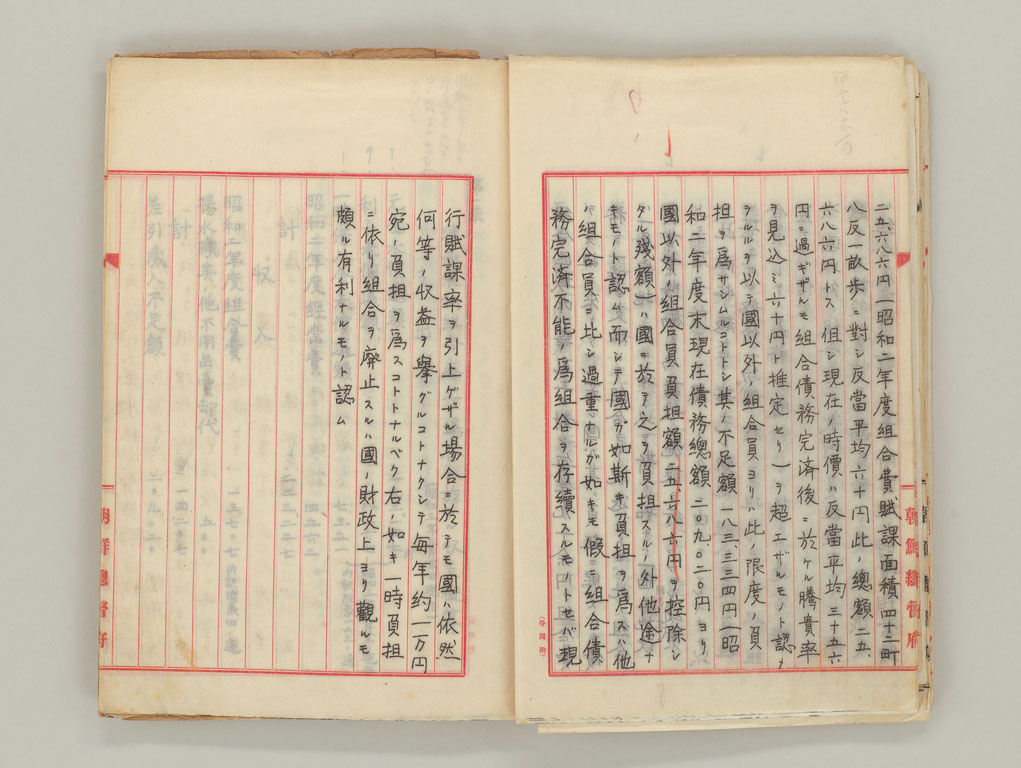 二五、六八六円(昭和二年度組合費賦課面積四十二町
八反一畝歩ニ対シ反當平均六十円此ノ總額二五、
六八六円トス但シ現在ノ時價ハ反當平均三十五六
円ニ過ギザルモ組合債務完済後ニ於ケル騰貴率
ヲ見込ミ六十円ト推定セリ)ヲ超エザルモノト認メ
ラルルヲ以テ國以外ノ組合員ヨリハ此ノ限度ノ負
担ヲ為サシムルコトトシ其ノ不足額一八三、三三四円(昭
和二年度末現在債務總額二〇九、〇二〇円ヨリ
國以外ノ組合員負担額二五、六八六円ヲ控除シ
タル残額)ハ國ニ於テ之ヲ負担スルノ外他途ナ
キモノト認ム而シテ國ガ如斯キ負担ヲ為スハ他
ノ組合員ニ比シ過重ナルガ如キモ假ニ組合債
務完済不能ノ為組合ヲ存續スルモノトセバ現
行賦課率ヲ引上ゲザル場合ニ於テモ國ハ依然
何等ノ収益ヲ擧グルコトナクシテ毎年約一万円
宛ノ負担ヲ為スコトトナルベク右ノ如キ一時負担
ニ依リ組合ヲ廃止スルハ國ノ財政上ヨリ觀ルモ
頗ル有利ナルモノト認ム
朝鮮總督府
朝鮮總督府